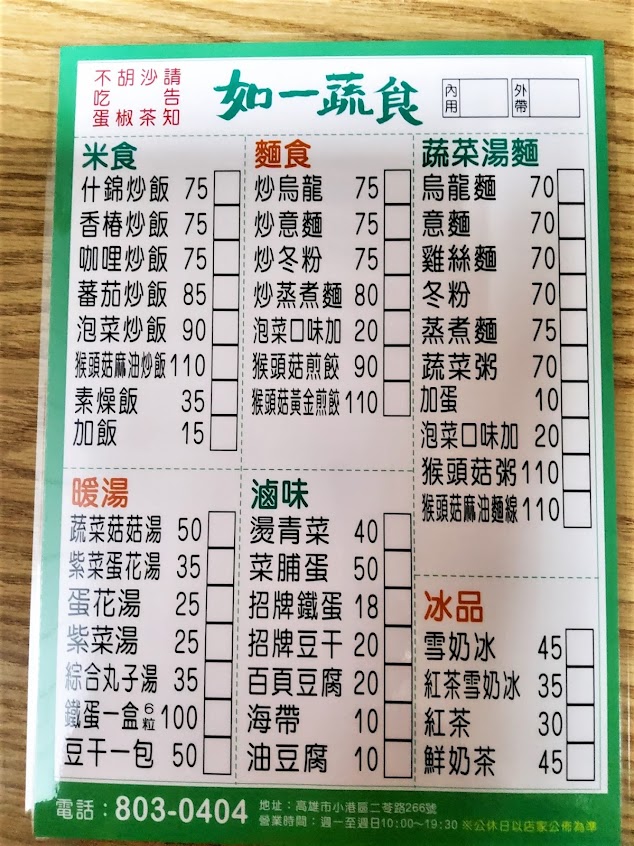 請告知
沙茶
胡椒
不吃蛋
如一蔬食
內用
外帶
米食
什錦炒飯 75
香椿炒飯 75
咖哩炒飯 75
蕃茄炒飯 85
泡菜炒飯 90
猴頭菇麻油炒飯 110
素燥飯 35
加飯 15
麵食
炒烏龍 75
炒意麵 75
炒冬粉 75
炒蒸煮麵 80
泡菜口味加 20
猴頭菇煎餃 90
猴頭菇黃金煎餃 110
蔬菜湯麵
烏龍麵 70
意麵 70
雞絲麵 70
冬粉 70
蒸煮麵 75
蔬菜粥 70
加蛋 10
泡菜口味加 20
猴頭菇粥 110
猴頭菇麻油麵線 110
暖湯
蔬菜菇菇湯 50
紫菜蛋花湯 35
蛋花湯 25
紫菜湯 25
綜合丸子湯 35
鐵蛋一盒6粒 100
豆干一包 50
滷味
燙青菜 40
菜脯蛋 50
招牌鐵蛋 18
招牌豆干 20
百頁豆腐 20
海帶 10
油豆腐 10
冰品
雪奶冰 45
紅茶雪奶冰 35
紅茶 30
鮮奶茶 45
電話：803-0404
地址：高雄市小港區二苓路266號
營業時間：週一至週日10:00～19:30 ※公休日以店家公佈為準